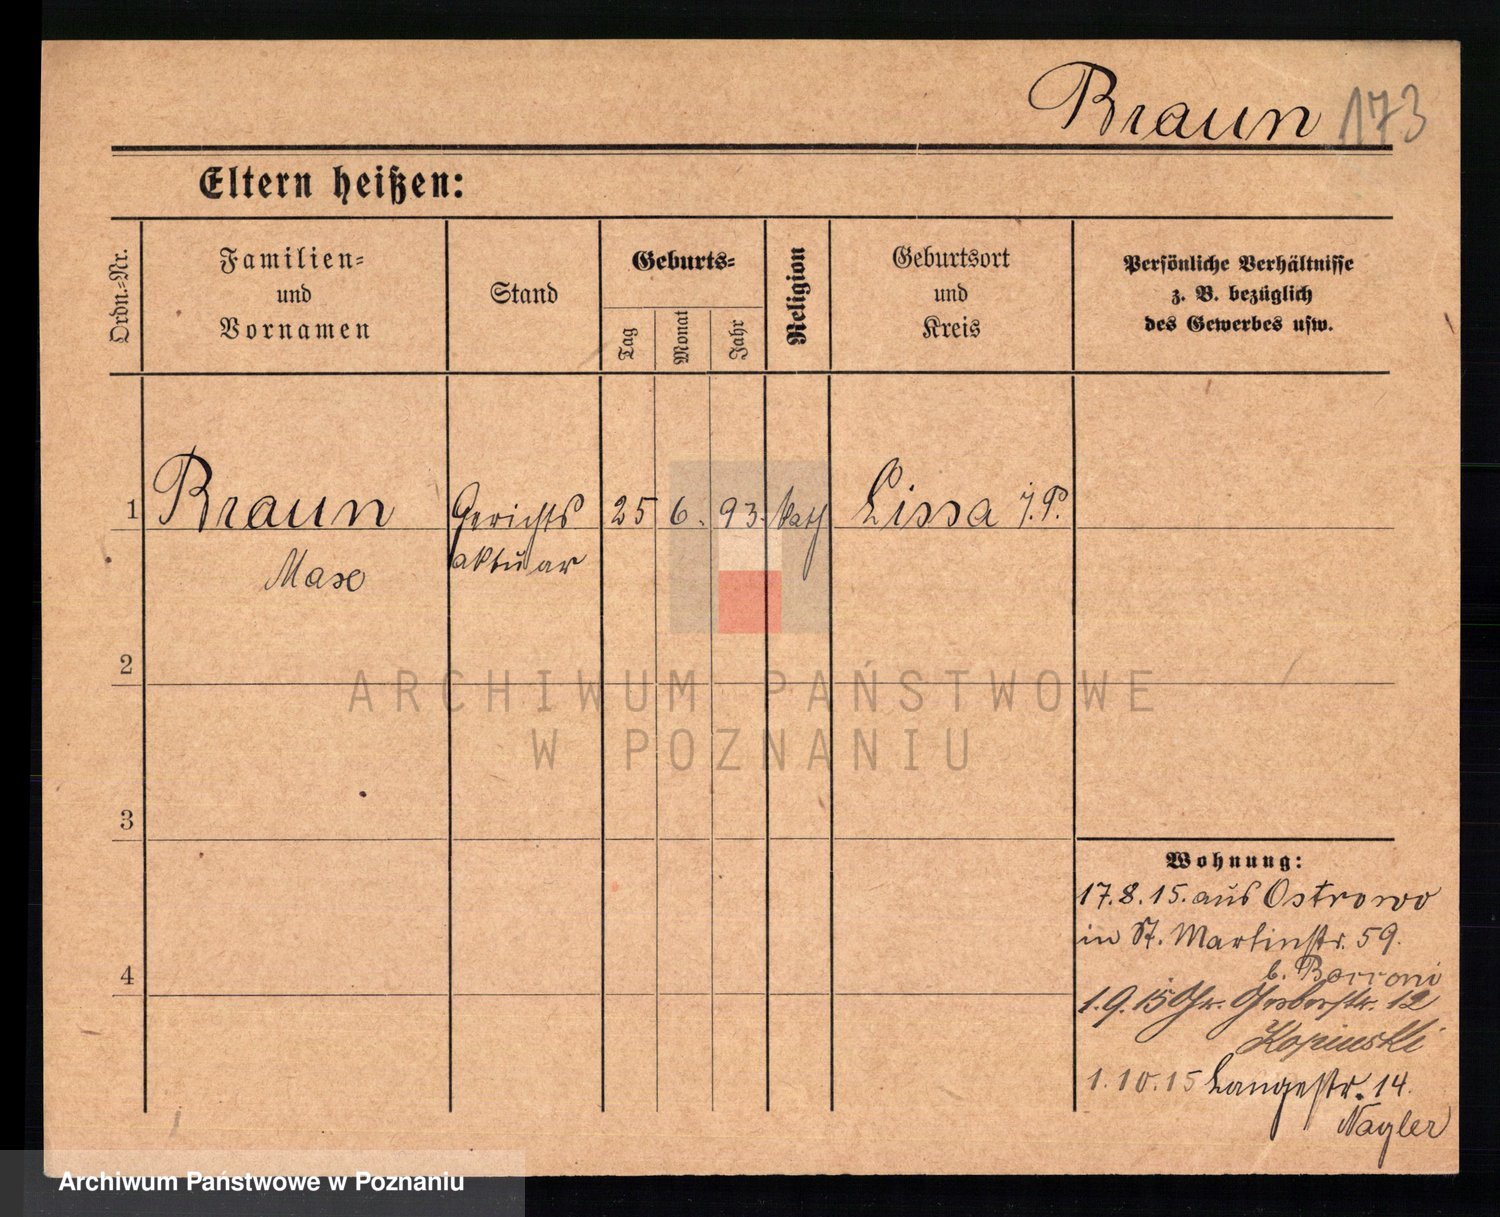 Braun 173
Eltern heißen:
Ordn.=Nr.
Familien=
und
Vornamen
Stand
Geburts=
Tag
Monat
Jahr
Religion
Geburtsort
und
Kreis
Persönliche Verhältnisse
z. B. bezüglich
des Gewerbes usw.
1 Braun Gerichts 25 6. 93. kath Lissa i. P.
Max aktuar
2
ARCHIWUM PAŃSTWOWE
W POZNANIU
3
Wohnung:
17.8.15. aus Ostrowo
in St. Martinstr. 59.
b. Borroni
4
1.9.15 Gr. Gerberstr. 12
Kopinski
1.10.15 Langestr. 14.
Nagler
Archiwum Państwowe w Poznaniu